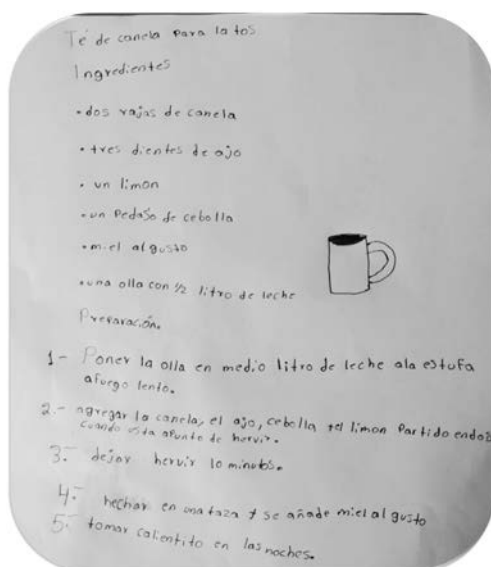 Té de canela para la tos
Ingredientes
• dos rajas de canela
• tres dientes de ajo
• un limon
• un pedaso de cebolla
• miel al gusto
• una olla con 1/2 litro de leche
Preparación.
1- Poner la olla en medio litro de leche ala estufa
afuego lento.
2.- agregar la canela, el ajo, cebolla y el limon partido en dos
cuando esta apunto de hervir.
3.- dejar hervir 10 minutos.
4.- hechar en una taza y se añade miel al gusto
5.- tomar calientito en las noches.